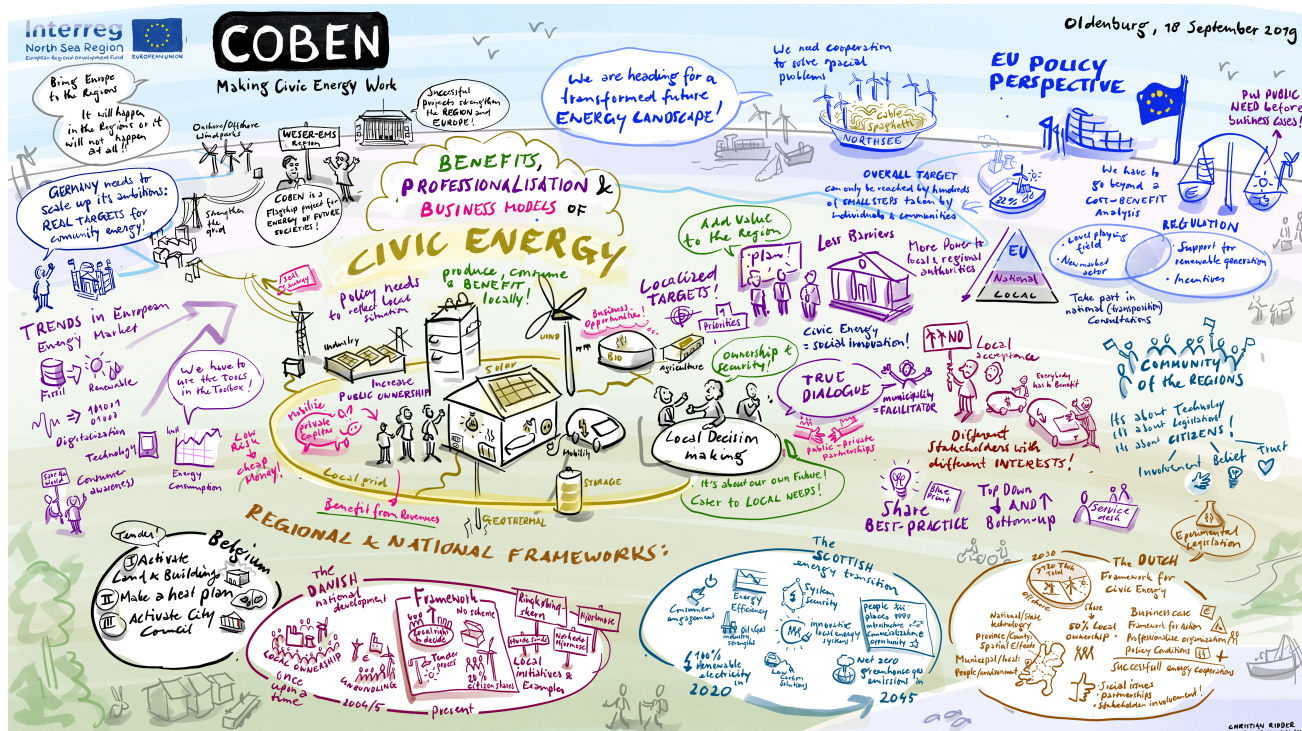 Interreg
North Sea Region
European Regional Development Fund
EUROPEAN UNION
COBEN
Making Civic Energy Work
Oldenburg, 18 September 2019
Bring Europe
to the Regions
It will happen
in the Regions or it
will not happen
at all!!
Onshore/Offshore
Windparks
WESER-EMS
Region
Successful
projects strengthen
the REGION and
EUROPE!
COBEN is a
Flagship project for
ENERGY OF FUTURE
SOCIETIES!
GERMANY needs to
scale up its ambitions:
REAL TARGETS for
comunity energy!
Strengthen
the
grid
sell
energy
We are heading for a
transformed future
ENERGY LANDSCAPE!
We need cooperation
to solve spacial
problems
cable
Spaghetti
NORTHSEE
EU POLICY
PERSPECTIVE
Put PUBLIC
NEED before
business cases!
OVERALL TARGET
can only be reached by hundreds
of SMALL STEPS taken by
individuals & communities
22%
We have to
go beyond a
COST-BENEFIT
Analysis
REGULATION
• Level playing
field
• New market
actor
• Support for
renewable generation
• Incentives
EU
National
LOCAL
More Power to
local & regional
authorities
Take part in
national (transposition)
Consultations
BENEFITS,
PROFESSIONALISATION &
BUSINESS MODELS OF
CIVIC ENERGY
Add Value
to the Region
plan!
Less Barriers
LOCALIZED
TARGETS!
Priorities
Civic Energy
= social innovation!
TRENDS in European
Energy Market
Fossil
Renewable
Digitalization
Technology
Consumer
awareness
Save the
World
We have to
use the TOOLS
in the Toolbox!
kWh
Energy
Consumption
Low
Risk
cheap
Money!
Policy needs
to reflect local
situation
produce, consume
& BENEFIT
locally!
WIND
Business-
Opportunities!
BIO
Agriculture
Industry
Increase
PUBLIC OWNERSHIP
Mobilize
private
capital
solar
Mobility
STORAGE
GEOTHERMAL
Local grid
Benefit from Revenues
Ownership &
Security!
Local Decision
making
• It's about our own Future!
Cater to LOCAL NEEDS!
TRUE
DIALOGUE
municipality
= FACILITATOR
Public-Private
Partnerships
NO
Local
acceptance
Everybody
has to Benefit
Different
Stakeholders with
different INTERESTS!
COMMUNITY
OF the REGIONS
It's about Technology
It's about Legislation!
It's about CITIZENS!
Involvement
Belief
Trust
Share
BEST-PRACTICE
Blue
Print
Top Down
AND
Bottom-up
Service
desk
Experimental
Legislation
REGIONAL & NATIONAL FRAMEWORKS:
Tender!
Belgium
I Activate
Land & Buildings
II Make a heat plan
III Activate City
Council
The
DANISH
national
development
LOCAL OWNERSHIP
once
upon a
time
UNBUNDLING
2004/5
Framework
Local right
to decide
No scheme
Tender
proces
20%
citizen shares
present
Ringkøbing-
skern
Hjortmose
Hvide Sande
Local
initiatives &
Examples
The
SCOTTISH
energy transition
Consumer
engagement
Energy
Efficiency
System
Security
Oil & gas
industry
strengths
innovative
local energy
systems
people
places
infrastructure
Commercialization
Opportunity
100%
renewable
electricity
in
2020
Low
Carbon
Solutions
Net zero
greenhouse gas
emissions in
2045
2030
The DUTCH
Framework for
Civic Energy
Offshore
Share
National/State
technology
50% Local
ownership
Province/County:
Spatial Effects
Municipal/local:
People/environment
Business case
Framework for Action
Professionalize organization
Policy Conditions
successfull energy cooperations
• Social issues
• partnerships
• Stakeholder involvement!
CHRISTIAN RIDDER